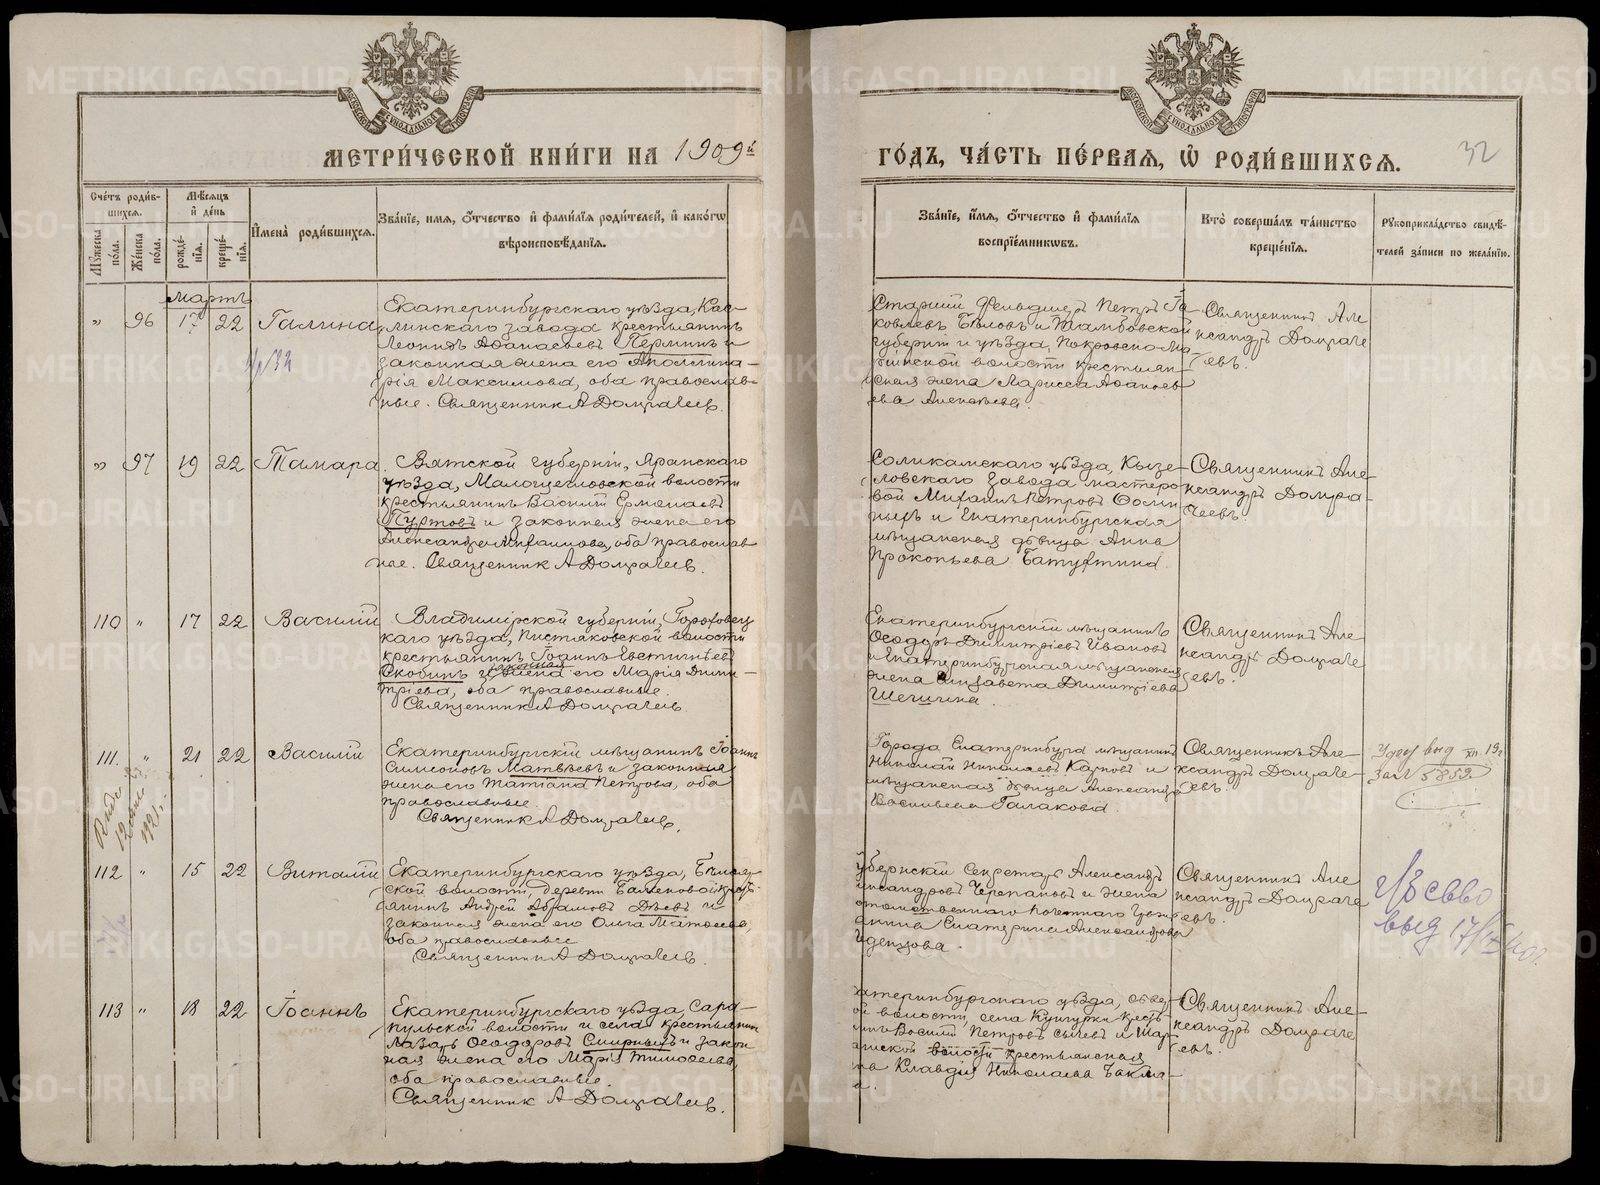 МЕТРИ́ЧЕСКОЙ КНИ́ГИ НА 1909й
ГО́ДЪ, ЧА́СТЬ ПЕ́РВАЯ, Ѡ҆ РОДИ́ВШИХСЯ.
32
Сче́тъ роди́в-
шихся.
Му́жеска по́ла.
Же́нска по́ла.
Мѣ́сяцъ
и҆ де́нь
рожде́-
нія.
креще́-
нія.
И҆мена̀ роди́вшихся.
Зва́ніе, и҆мя, о҆́тчество и҆ фами́лія роди́телей, и҆ како́гѡ
вѣроисповѣ́данія.
Зва́ніе, и҆́мя, о҆́тчество и҆ фами́лія
воспріе́мниковъ.
Кто̀ соверша́лъ та́инство
креще́нія.
Рукоприкла́дство свидѣ́-
телей за́писи по жела́нію.
Мартъ
„ 96 17 22 Галина
Екатеринбургскаго уѣзда, Кас-
линскаго завода крестьянинъ
Леонидъ Афанасьевъ Перминъ и
законная жена его Аполлина-
рія Максимова, оба православ-
ные. Священникъ А Домрачеев.
Старшій Фельдшеръ Петръ Іа-
ковлевъ Бѣловъ и Тамбовской
губерніи и уѣзда, Покровско-Ма-
волости крестьян-
ская женаЛарисса Афанась-
ева Алексѣева.
Священникъ Але
ксандръ Домраче
евъ.
„ 97 19 22 Тамара
Вятской губерніи, Яранскаго
уѣзда, волости
крестьянинъ Василій Ермолаевъ
Пуртовъ и законная жена его
Александра Михаилова, оба православ
ные. Священник А Домрачеев.
Соликамскаго уѣзда, Кызе-
ловскаго завода мастеро-
вой Михаилъ Петровъ
и Екатеринбургская
мѣщанская дѣвица Анна
Прокопьева Батухтина.
Священникъ Але-
ксандръ Домра-
чеевъ.
110 „ 17 22 Василій
Владимірской губерніи, Гороховец
каго уѣзда, Пистяковской волости
крестьянинъ Іоаннъ Евстигнѣев
Скобинъ и законная жена его Марія Дими-
тріева, оба православные.
Священникъ А Домрачеев.
Екатеринбургскій мѣщанинъ
Ѳеодоръ Димитріевъ Ивановъ
и Екатеринбургская мѣщанская
жена Елизавета Димитріева
Шегигина.
Священникъ Але
ксандръ Домраче
евъ.
111. „ 21 22 Василій
Екатеринбургскій мѣщанинъ Іоаннъ
Симеоновъ Матвѣевъ и законная
жена его Татіана Петрова, оба
православные.
Священник А Домрачеев.
Города Екатеринбурга мѣщанинъ
Николай Николаевъ Карповъ и
мѣщанская дѣвица Александра
Васильева Галакова.
Священникъ Але-
ксандръ Домраче-
евъ.
выд XII 19
5852
1921 г.
112 „ 15 22 Виталій
Екатеринбургскаго уѣзда,
ской волости, деревни Баженовой крест-
янинъ Андрей Абрамовъ Дѣевъ и
законная жена его Ольга Матѳеева,
оба православные
Священник А Домрачеев.
убернскій Секретарь Александръ
лександровъ Черепановъ и жена
отомственнаго Почетнаго Граж
данина Екатерина Александрова
Священникъ Але
ксандръ Домраче
евъ.
г/ъ св-во
выд 17/
113 „ 18 22 Іоаннъ
Екатеринбургскаго уѣзда, Сара-
пульской волости и села крестьянин
Лазарь Ѳеодоровъ Смирныхъ и закон
ная жена его Марія Тимоѳеева,
оба православные.
Священник А Домрачеев.
катеринбургскаго уѣзда,
ой волости, села Кунгурки крест-
нинъ Василій Петровъ Сычевъ и Шар-
ташской волости крестьянская
Клавдія Николаева
Священникъ Але-
ксандръ Домраче
евъ.
METRIKI.GASO-URAL.RU